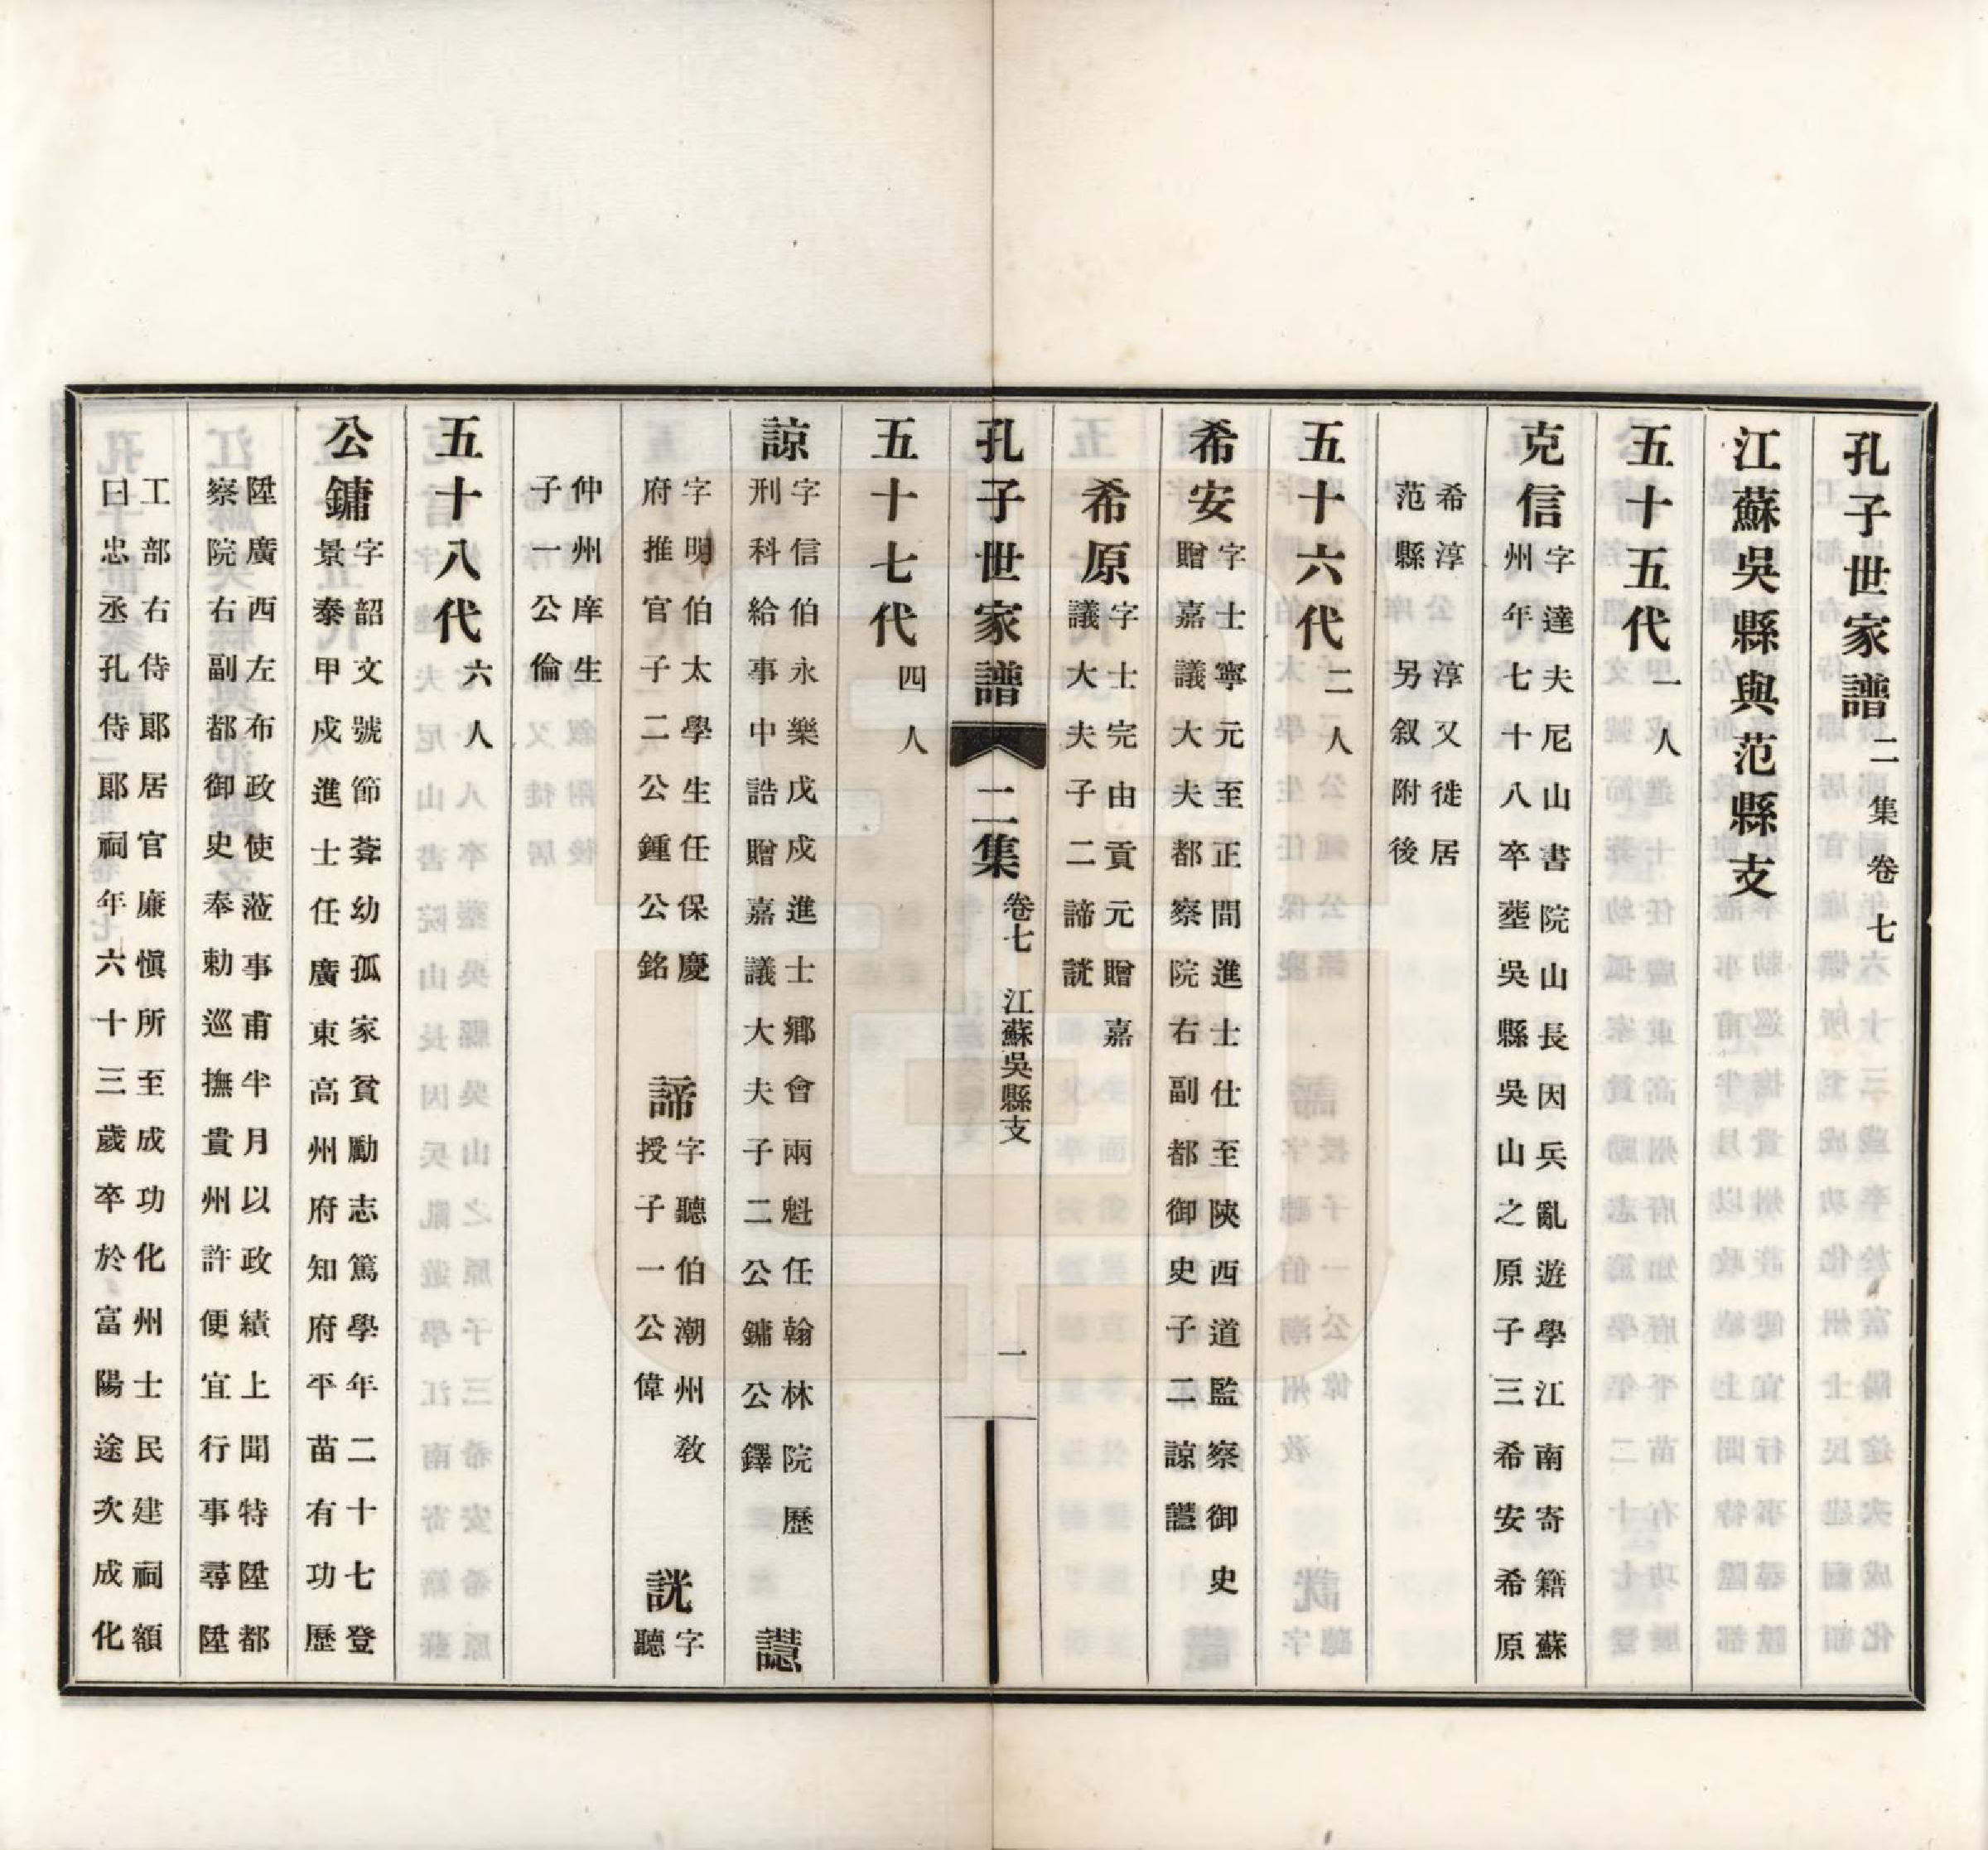 孔子世家譜 二集卷七
江蘇吳縣與范縣支
五十五代 一人
克信 字達夫尼山書院山長因兵亂遊學江南寄籍蘇
州年七十八卒塟吳縣吳山之原子三希安希原
希淳公淳又徙居
范縣另叙附後
五十六代 二人
希安 字士寧元至正間進士仕至陝西道監察御史
贈嘉議大夫都察院右副都御史子二諒讛
希原 字士完由貢元贈嘉
議大夫子二諦諕
孔子世家譜 二集 卷七 江蘇吳縣支 一
五十七代 四人
諒 字信伯永樂戊戌進士鄉會兩魁任翰林院歷
刑科給事中誥贈嘉議大夫子二公鏞公鐸
字明伯太學生任保慶
府推官子二公鍾公銘
諦 字聽伯潮州教
授子一公偉
字
聽
仲州庠生
子一公倫
五十八代 六人
公鏞 字韶文號節菴幼孤家貧勵志篤學年二十七登
景泰甲戌進士任廣東高州府知府平苗有功歷
陞廣西左布政使蒞事甫半月以政績上聞特陞都
察院右副都御史奉勅巡撫貴州許便宜行事尋陞
工部右侍郎居官廉愼所至成功化州士民建祠額
曰忠丞孔侍郎祠年六十三歲卒於富陽途次成化